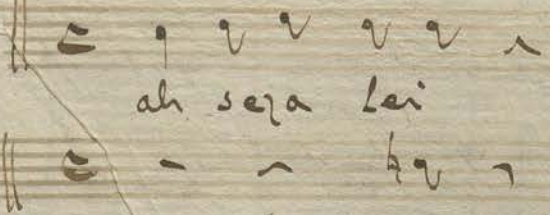 ah seza Lei